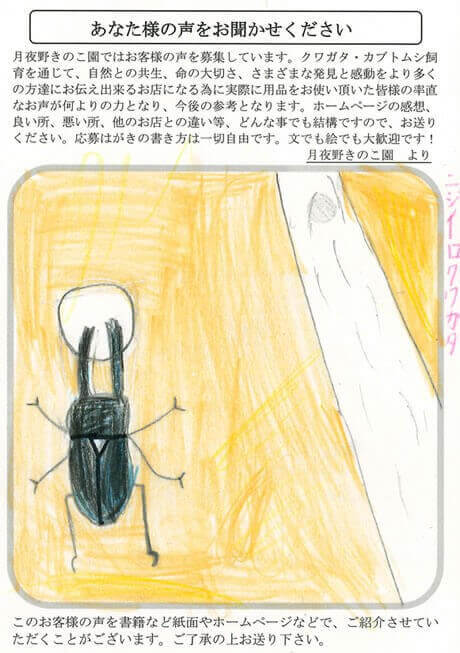 あなた様の声をお聞かせください
月夜野きのこ園ではお客様の声を募集しています。クワガタ・カブトムシ飼
育を通じて、自然との共生、命の大切さ、さまざまな発見と感動をより多く
の方達にお伝え出来るお店になる為に実際に用品をお使い頂いた皆様の率直
なお声が何よりの力となり、今後の参考となります。ホームページの感想、
良い所、悪い所、他のお店との違い等、どんな事でも結構ですので、お送り
ください。応募はがきの書き方は一切自由です。文でも絵でも大歓迎です！
月夜野きのこ園　より
ニジイロクワガタ
このお客様の声を書籍など紙面やホームページなどで、ご紹介させてい
ただくことがございます。ご了承の上お送り下さい。